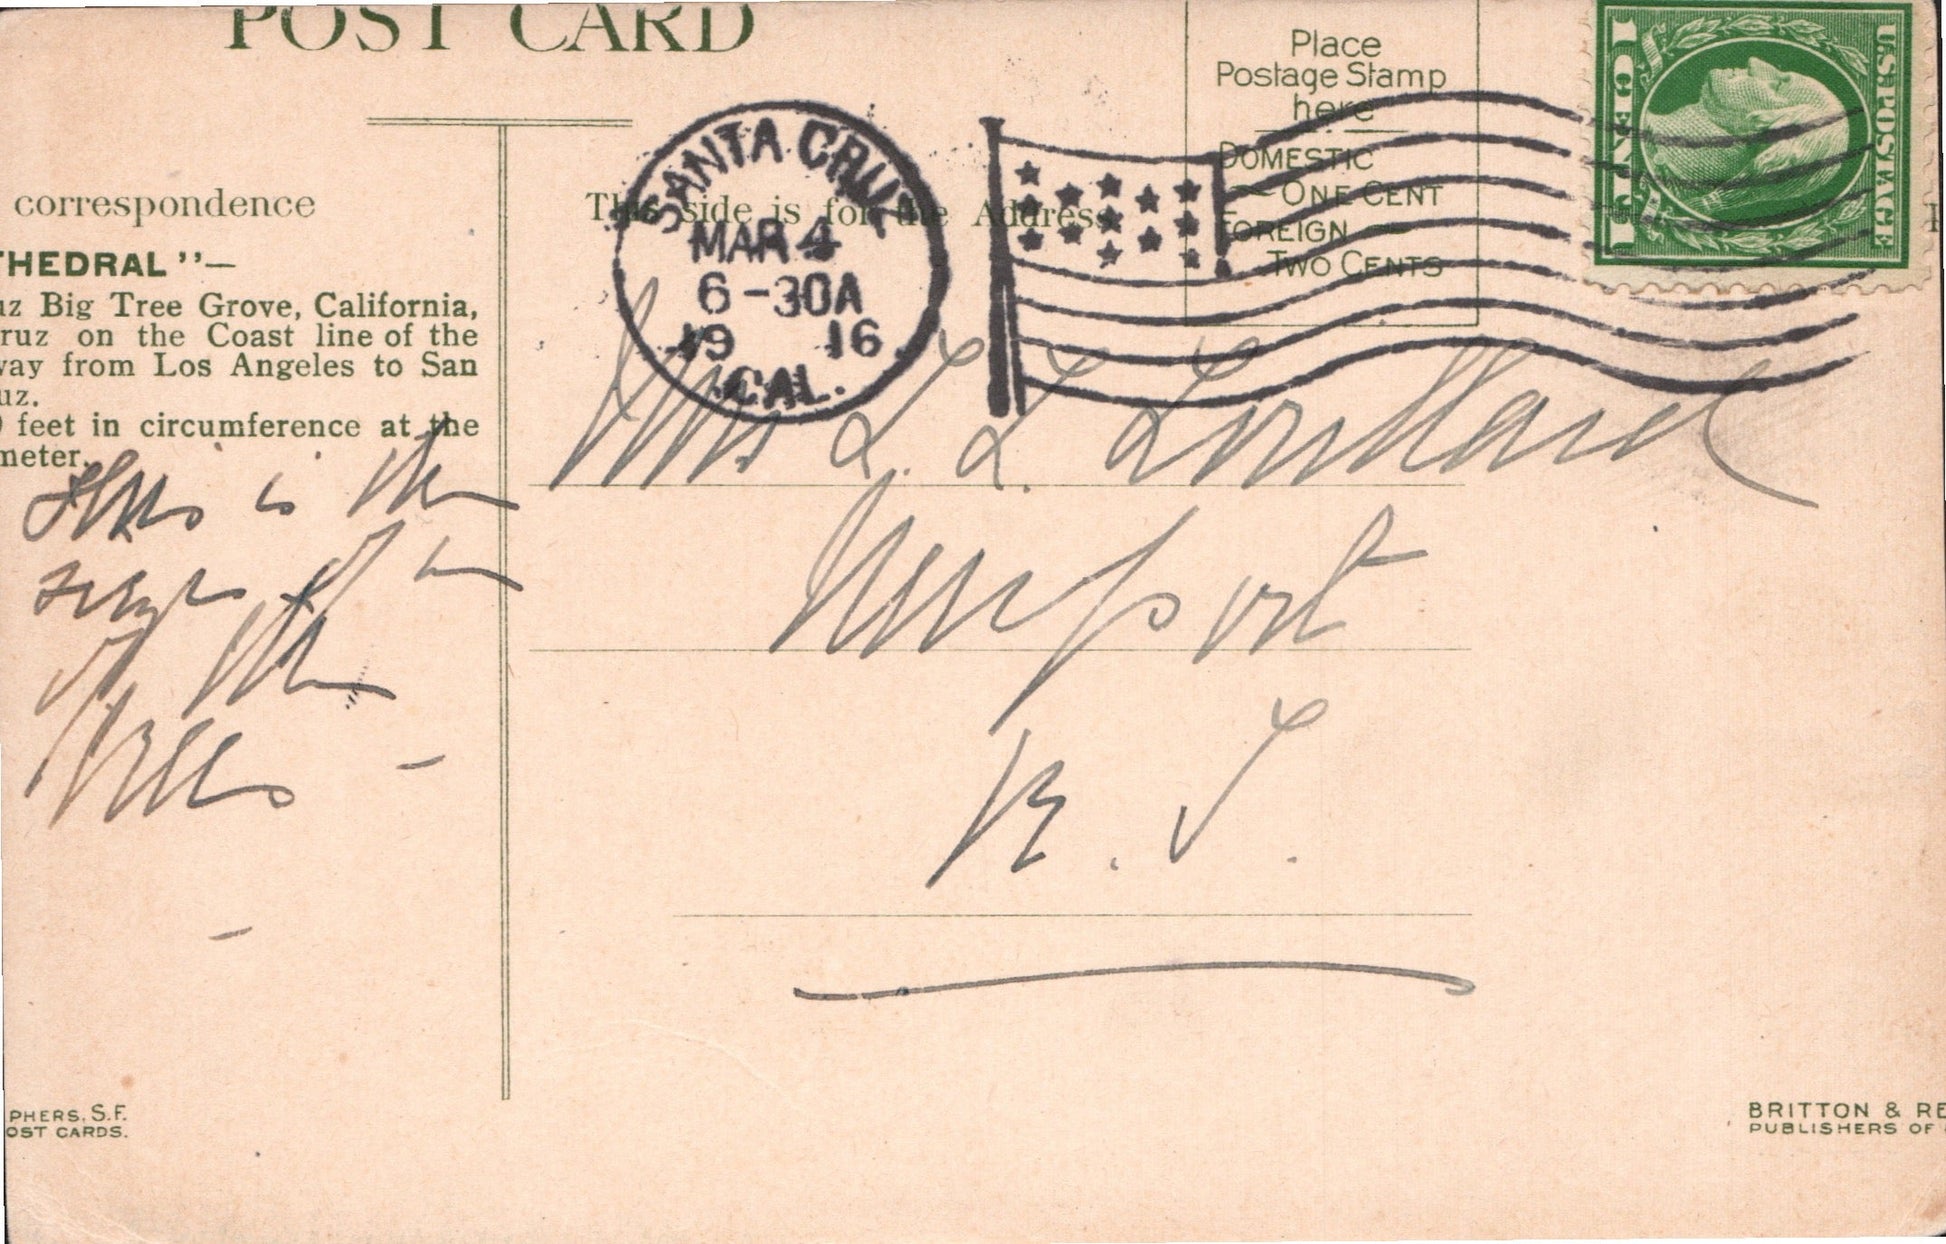 POST CARD
Place
Postage Stamp
here
DOMESTIC
ONE CENT
FOREIGN
TWO CENTS
1 CENT 1
U.S. POSTAGE
SANTA CRUZ
MAR 4
6-30A
19 16
CAL.
correspondence
This side is for the Address
THEDRAL"—
uz Big Tree Grove, California,
ruz on the Coast line of the
way from Los Angeles to San
uz.
0 feet in circumference at the
meter.
This is the
of the
Mrs L. L. Lorillard
Newport
R. I.
PHERS, S.F.
OST CARDS.
BRITTON & RE
PUBLISHERS OF